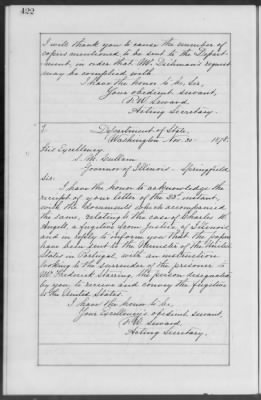 422
I will thank you to cause the number of
copies mentioned, to be sent to the Depart-
ment, in order that Mr. Dichman's request
may be complied with.
I have the honor to be, Sir,
Your obedient servant,
F. W. Seward.
Acting Secretary.
Department of State,
Washington Nov. 30 1878.
His Excellency
S. M. Cullom
Governor of Illinois - Springfield.
Sir:
I have the honor to acknowledge the
receipt of your letter of the 23d. instant,
with the documents which accompanied
the same, relating to the case of Charles W.
Angell, a fugitive from Justice of Illinois,
and in reply to inform you that the papers
have been sent to the Minister of the United
States in Portugal, with an instruction
looking to the surrender of the prisoner to
Mr. Frederick Starring, the person designated
by you to receive and convey the fugitive
to the United States.
I have the honor to be,
Your Excellency's obedient servant,
F. W. Seward.
Acting Secretary.